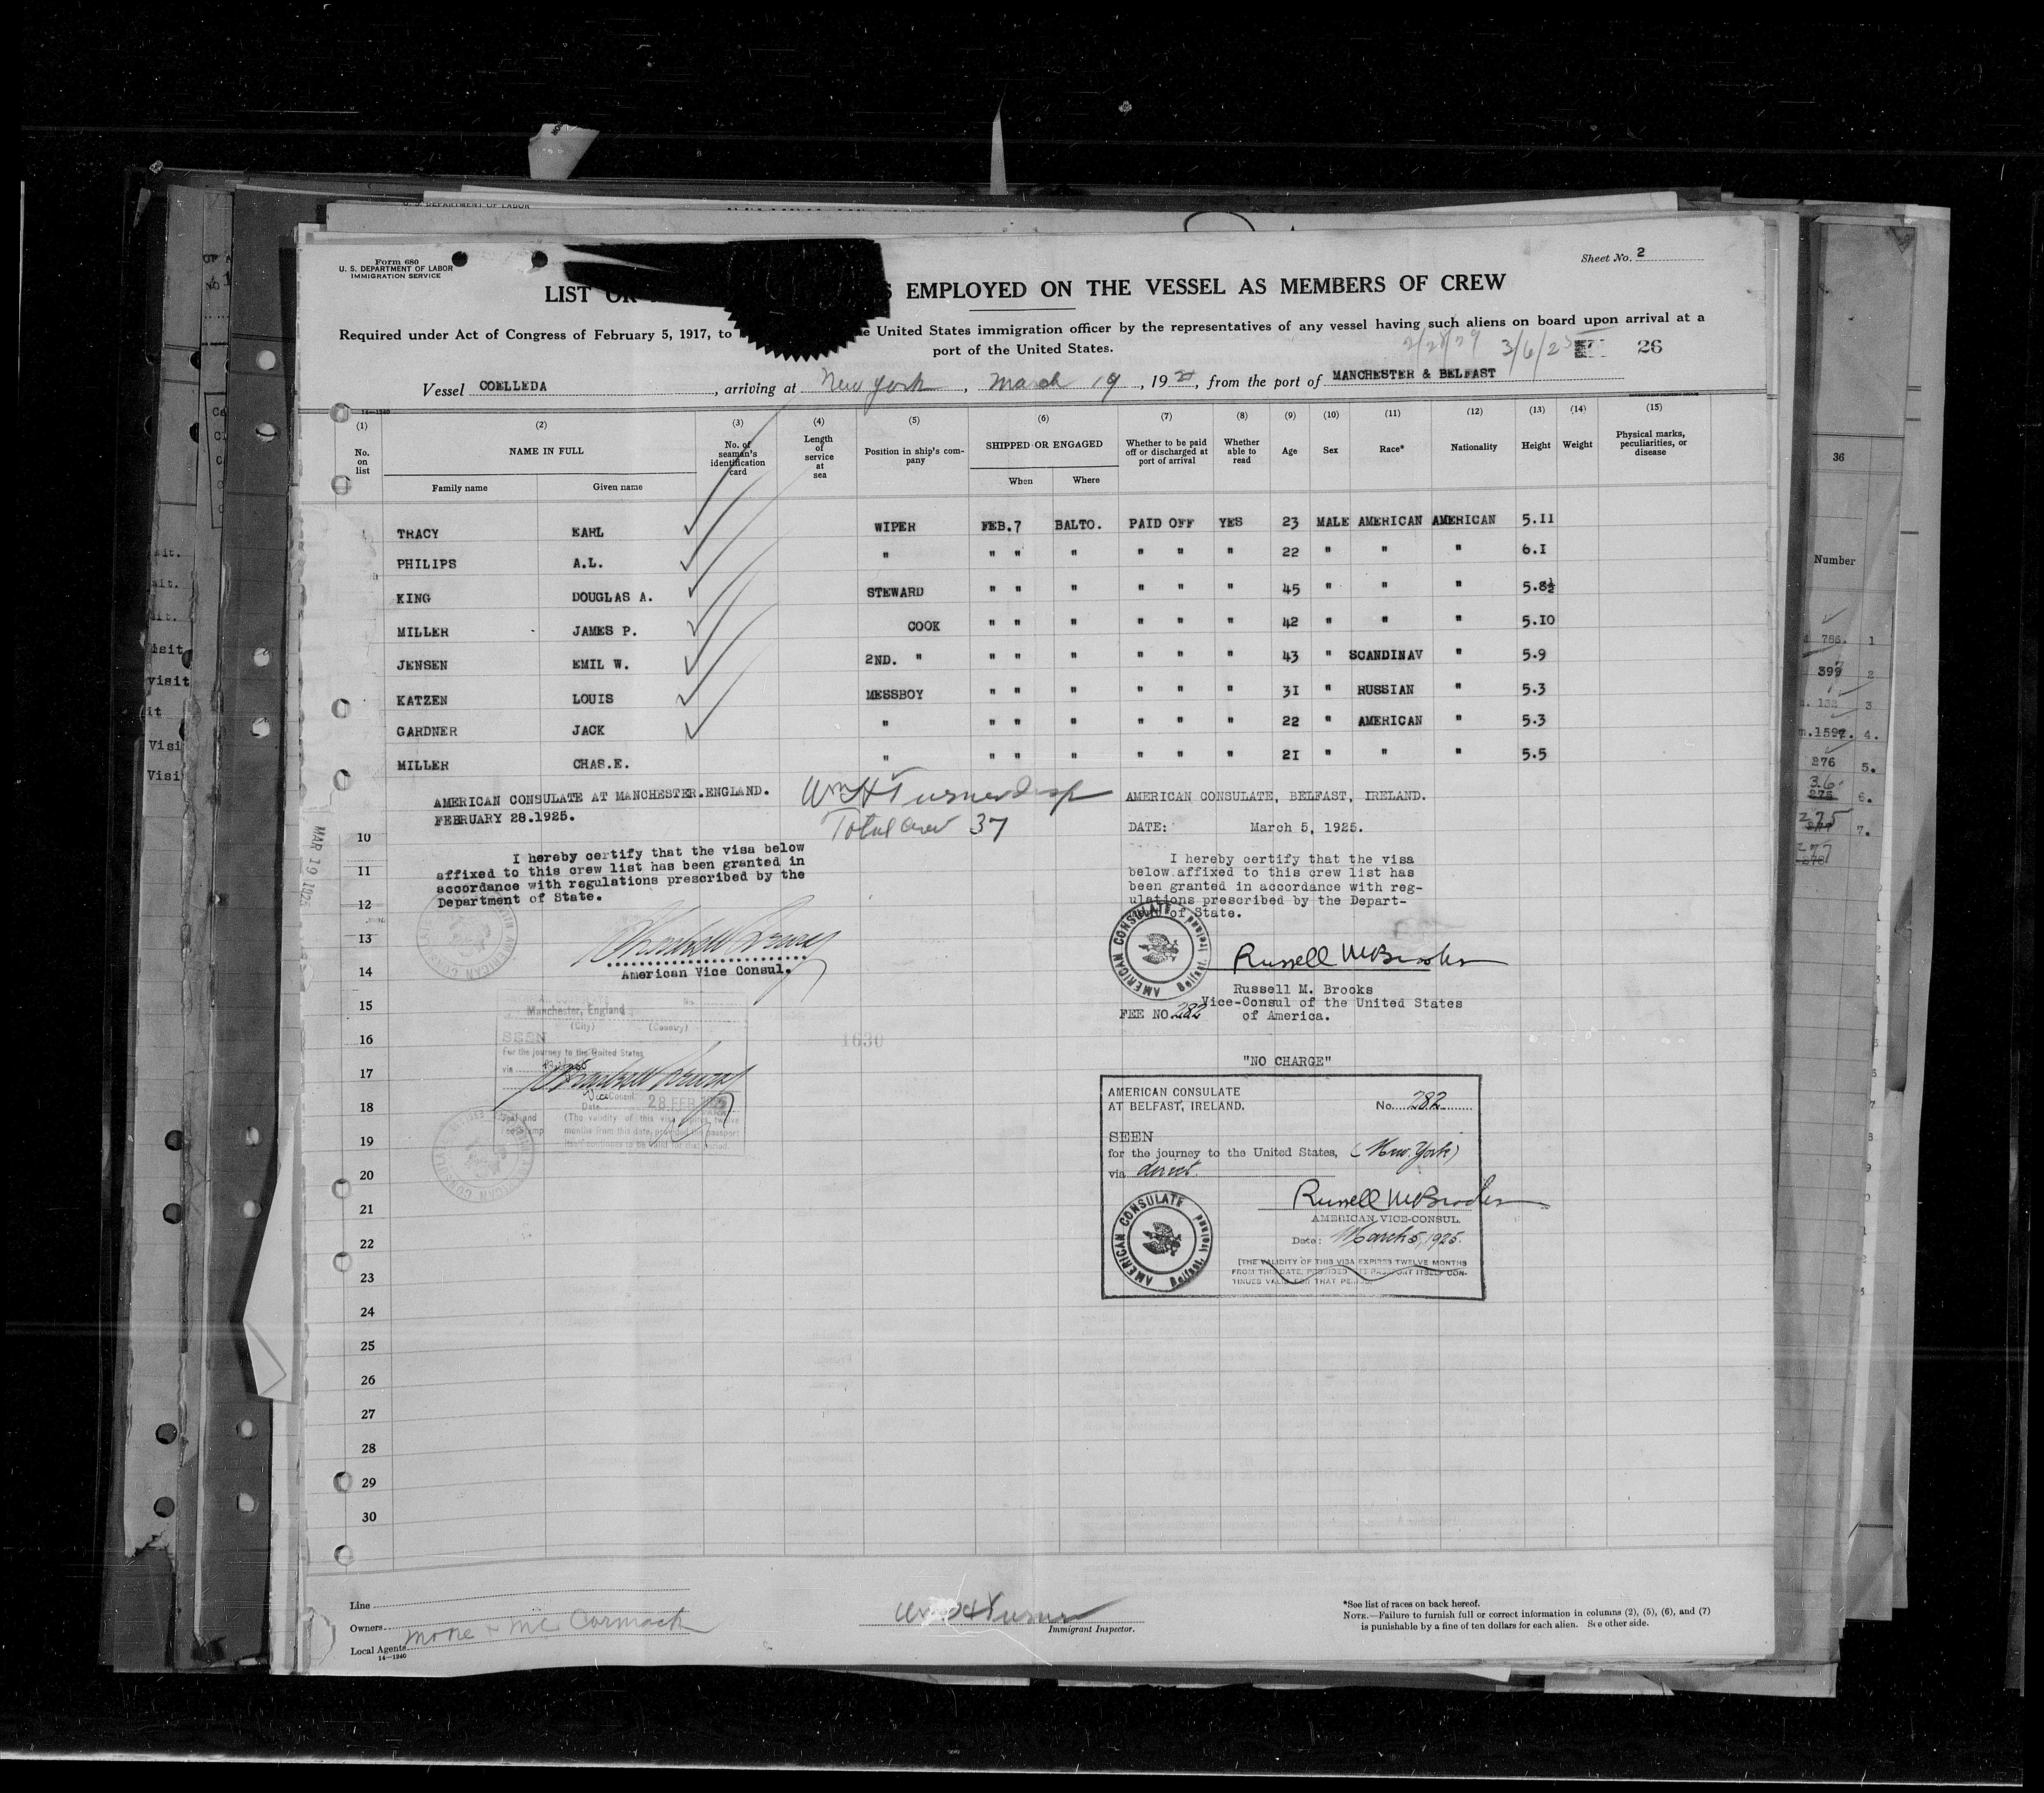 U. S. DEPARTMENT OF LABOR
Form 680
U. S. DEPARTMENT OF LABOR
IMMIGRATION SERVICE
Sheet No. 2
LIST OR EMPLOYED ON THE VESSEL AS MEMBERS OF CREW
Required under Act of Congress of February 5, 1917, to United States immigration officer by the representatives of any vessel having such aliens on board upon arrival at a
port of the United States.
3/6/25 26
Vessel COELLEDA, arriving at New York, March 19, 19 , from the port of MANCHESTER & BELFAST
14-1240
(1) (2) (3) (4) (5) (6) (7) (8) (9) (10) (11) (12) (13) (14) (15)
No. on list NAME IN FULL No. of seaman's identification card Length of service at sea Position in ship's company SHIPPED OR ENGAGED Whether to be paid off or discharged at port of arrival Whether able to read Age Sex Race* Nationality Height Weight Physical marks, peculiarities, or disease
Family name Given name When Where
TRACY EARL ✓ WIPER FEB.7 BALTO. PAID OFF YES 23 MALE AMERICAN AMERICAN 5.11
PHILIPS A.L. ✓ " " " " " " " 22 " " " 6.1
KING DOUGLAS A. ✓ STEWARD " " " " " " 45 " " " 5.8½
MILLER JAMES P. ✓ COOK " " " " " " 42 " " " 5.10
JENSEN EMIL W. ✓ 2ND. " " " " " " " 43 " SCANDINAV " 5.9
KATZEN LOUIS ✓ MESSBOY " " " " " " 31 " RUSSIAN " 5.3
GARDNER JACK ✓ " " " " " " " 22 " AMERICAN " 5.3
MILLER CHAS.E. " " " " " " " 21 " " " 5.5
AMERICAN CONSULATE AT MANCHESTER.ENGLAND.
FEBRUARY 28.1925.
I hereby certify that the visa below
affixed to this crew list has been granted in
accordance with regulations prescribed by the
Department of State.
American Vice Consul.
Wm H Turner Insp
Total Crew 37
AMERICAN CONSULATE, BELFAST, IRELAND.
DATE: March 5, 1925.
I hereby certify that the visa
below affixed to this crew list has
been granted in accordance with reg-
ulations prescribed by the Depart-
ment of State.
AMERICAN CONSULATE Belfast, Ireland
Russell M Brooks
Russell M. Brooks
Vice-Consul of the United States
of America.
FEE NO. 282
"NO CHARGE"
MAR 19 192
Manchester, England
(City) (Country)
No.
SEEN
For the journey to the United States
via
Vice Consul
Date 28 FEB 1925
(The validity of this visa expires twelve
months from this date, provided the passport
itself continues to be valid for that period.
1630
AMERICAN CONSULATE
AT BELFAST, IRELAND.
No. 282
SEEN
for the journey to the United States, (New York)
via direct.
AMERICAN CONSULATE Belfast, Ireland
Russell M Brooks
AMERICAN VICE-CONSUL.
Date: March 5, 1925.
[THE VALIDITY OF THIS VISA EXPIRES TWELVE MONTHS
FROM THIS DATE, PROVIDED THE PASSPORT ITSELF CON-
TINUES VALID FOR THAT PERIOD.
10
11
12
13
14
15
16
17
18
19
20
21
22
23
24
25
26
27
28
29
30
Line
Owners
Local Agents Moore & McCormack
14-1240
Wm H Turner
Immigrant Inspector.
*See list of races on back hereof.
NOTE.—Failure to furnish full or correct information in columns (2), (5), (6), and (7)
is punishable by a fine of ten dollars for each alien. See other side.
visit
Visi
Visi
36
Number
786. 1
399 2
132 3
1597. 4.
276 5.
36 6.
275 7.
277